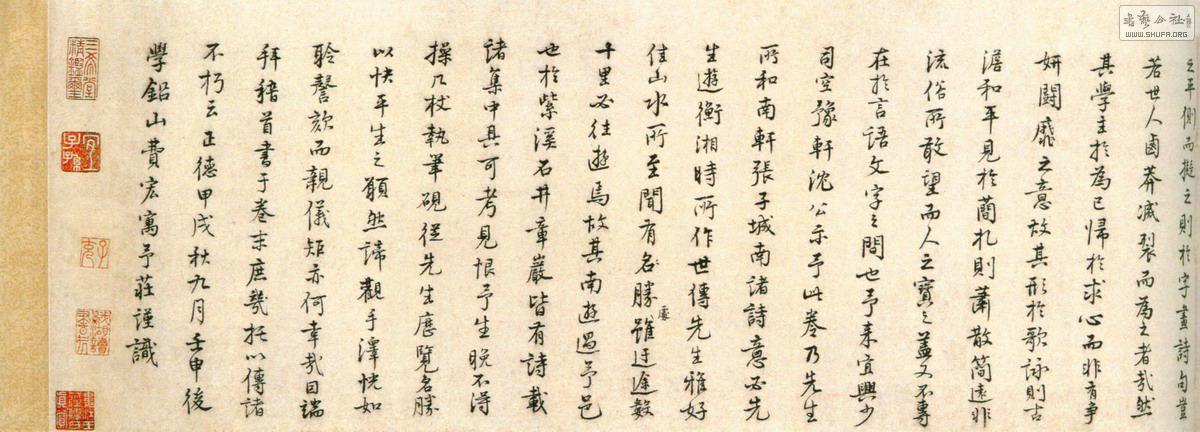 之平側而挺之則於字畫詩句豈
若世人鹵莽滅裂而為之者哉然
其學主於為己歸於求心而非有爭
妍鬪靡之意故其形於歌詠則古
澹和平見於簡札則蕭散簡遠非
流俗所敢望而人之寶之蓋又不專
在於言語文字之間也予来宜興少
司空豫軒沈公示予此卷乃先生
所和南軒張子城南諸詩意必先
生遊衡湘時所作世傳先生雅好
佳山水所至聞有名勝處雖迂途數
十里必往遊焉故其南遊過予邑
也於紫溪石井章巖皆有詩載
諸集中具可考見恨予生晚不得
操几杖執筆硯從先生歷覽名勝
以快平生之願然諦觀手澤恍如
聆謦欬而親儀矩亦何幸哉因端
拜稽首書于卷末庶幾托以傳諸
不朽云正德甲戌秋九月壬申後
學鉛山費宏寓予莊謹識
三希堂精鑑璽
宜子孫
WWW.SHUFA.ORG